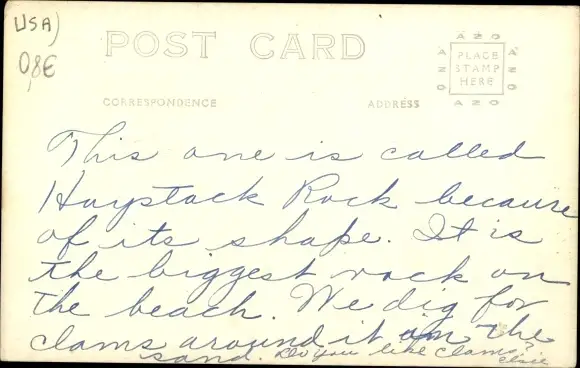 USA)
0,8€
POST CARD
AZO
PLACE
STAMP
HERE
AZO
AZO
AZO
CORRESPONDENCE
ADDRESS
This one is called
Haystack Rock because
of its shape. It is
the biggest rock on
the beach. We dig for
clams around it in the
sand. Do you like clams?
Elsie